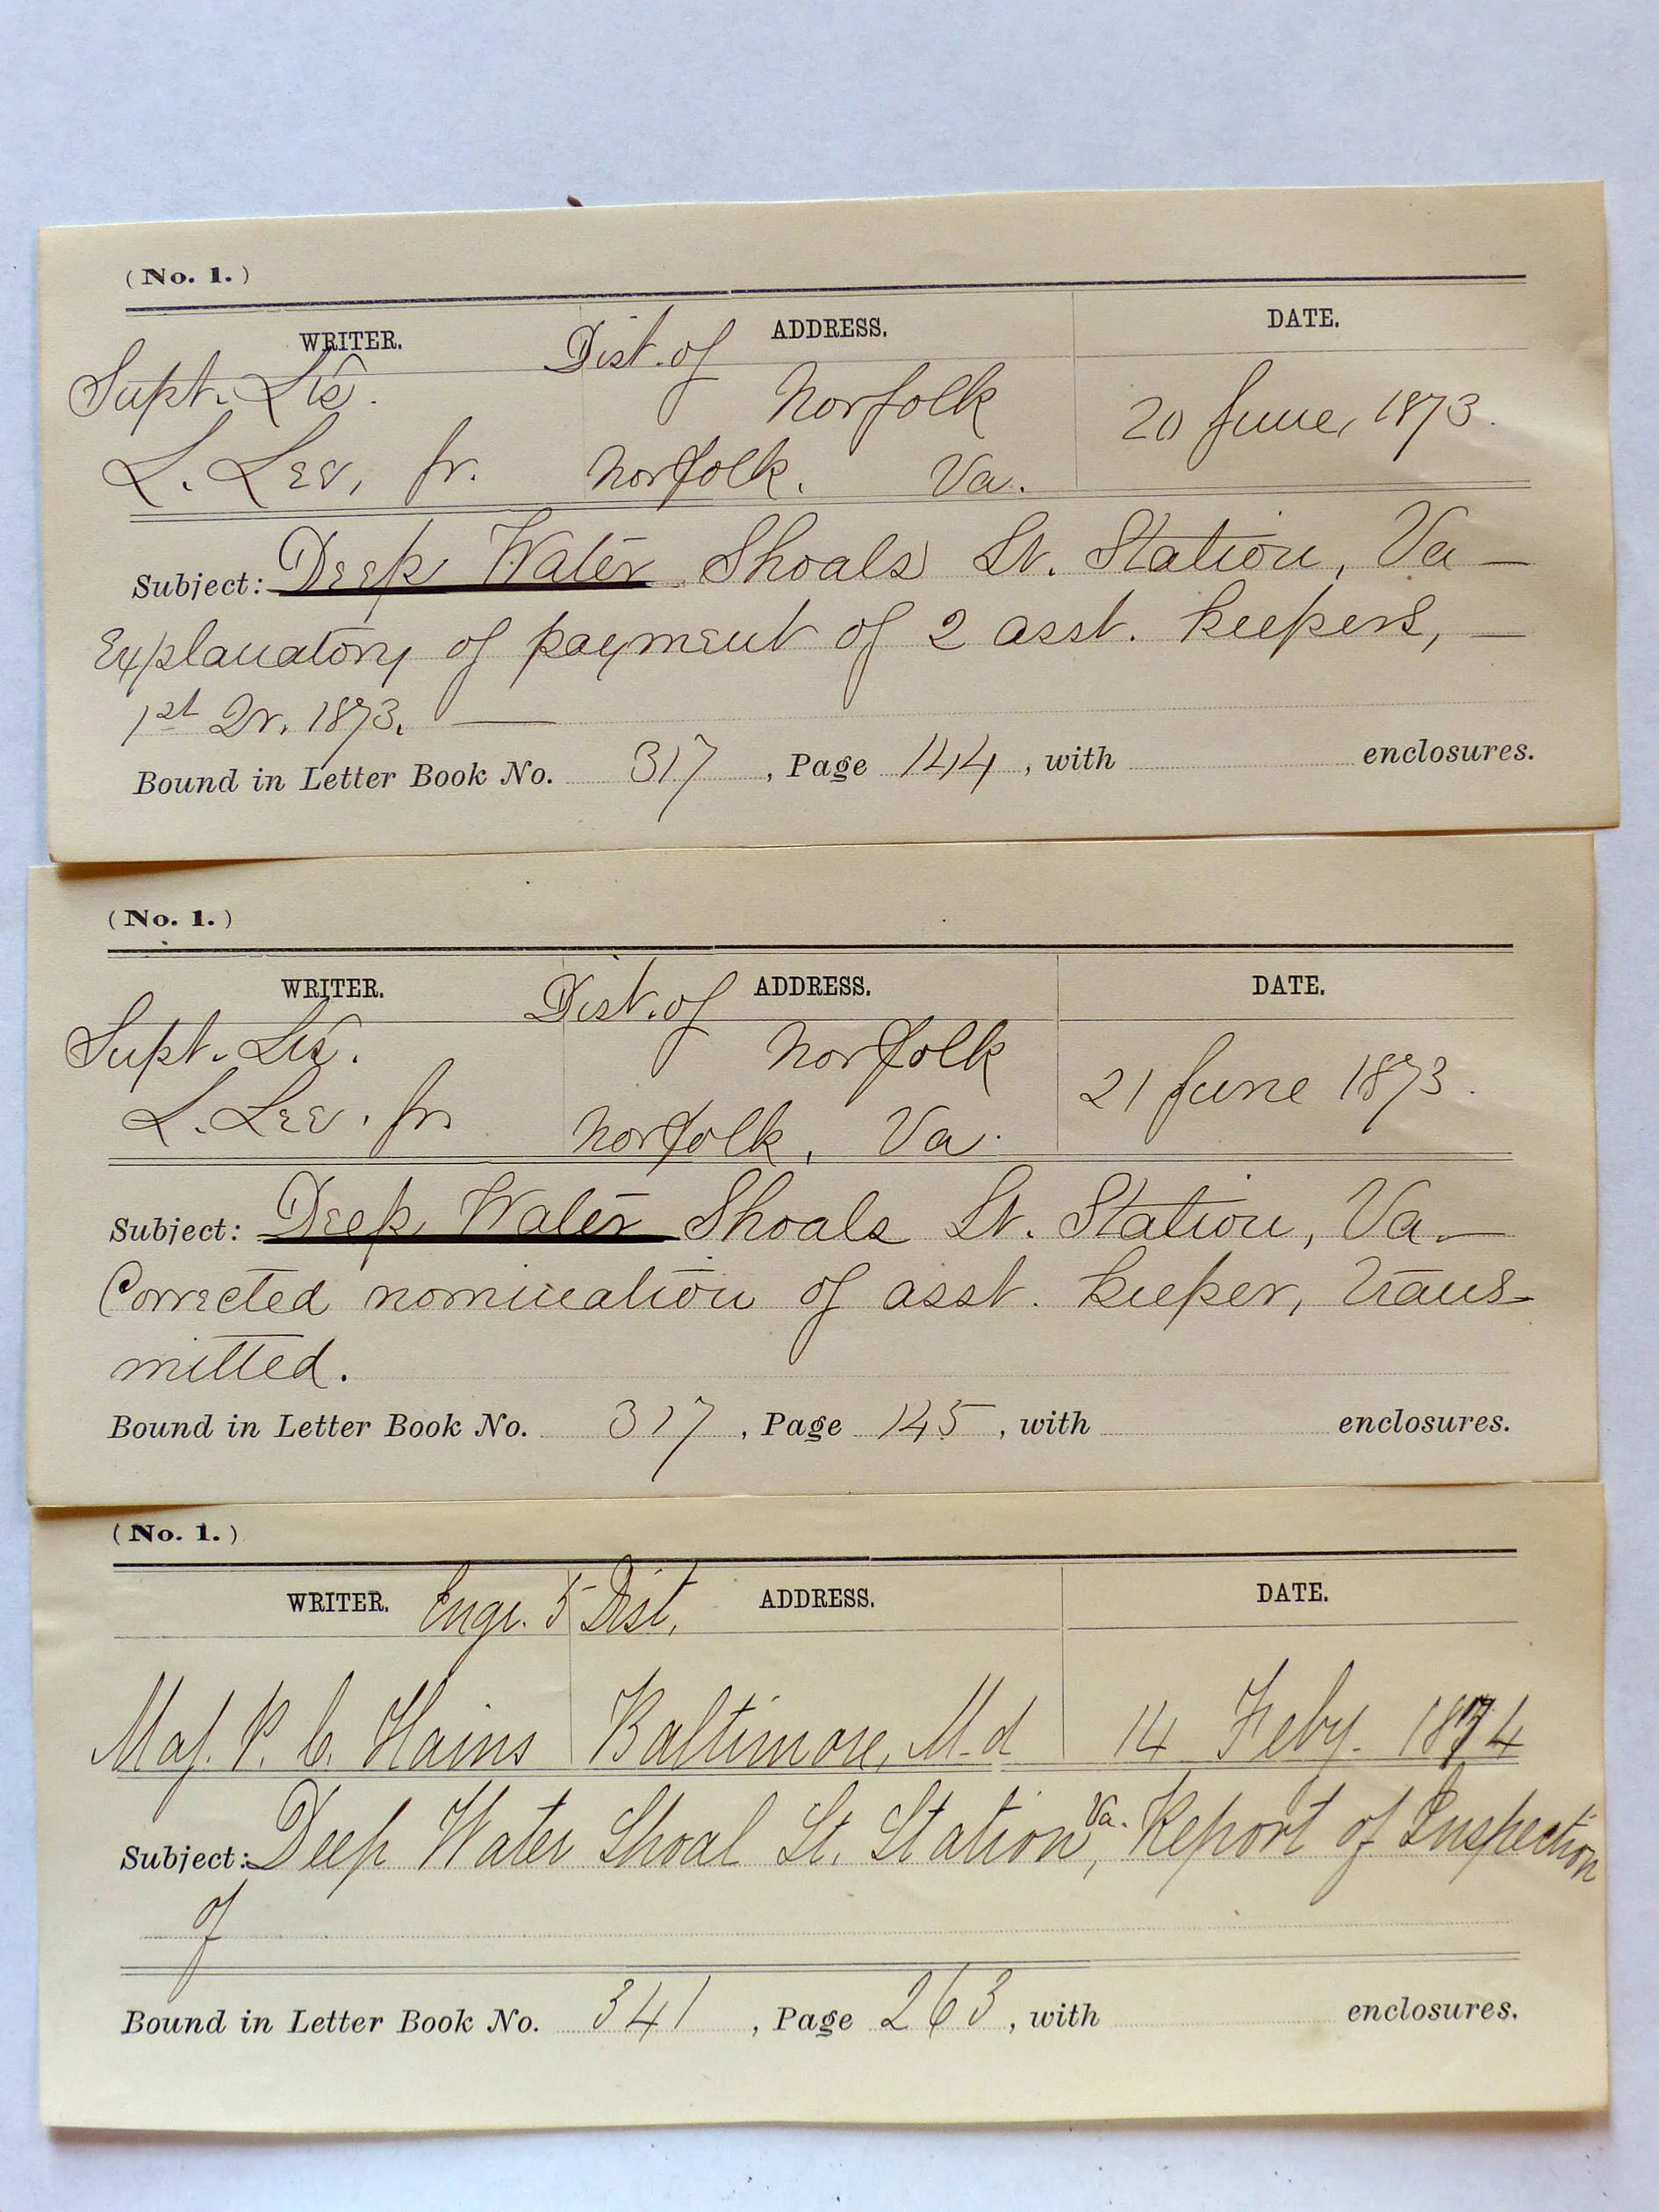 (No. 1.)
WRITER. ADDRESS. DATE.
Supt. Lts. Dist. of Norfolk 20 June, 1873.
L. Lee, Jr. Norfolk. Va.
Subject: Deep Water Shoals Lt. Station, Va —
Explanatory of payment of 2 asst. keepers, —
1st Qr. 1873. —
Bound in Letter Book No. 317, Page 144, with enclosures.
(No. 1.)
WRITER. ADDRESS. DATE.
Supt. Lts. Dist. of Norfolk 21 June 1873.
L. Lee. Jr. Norfolk, Va.
Subject: Deep Water Shoals Lt. Station, Va. —
Corrected nomination of asst. keeper, trans-
mitted.
Bound in Letter Book No. 317, Page 145, with enclosures.
(No. 1.)
WRITER. Engr. 5 Dist. ADDRESS. DATE.
Maj. P. C. Hains Baltimore, Md 14 Feby. 1874
Subject: Deep Water Shoal Lt. Station, Va. Report of Inspection
of
Bound in Letter Book No. 341, Page 263, with enclosures.